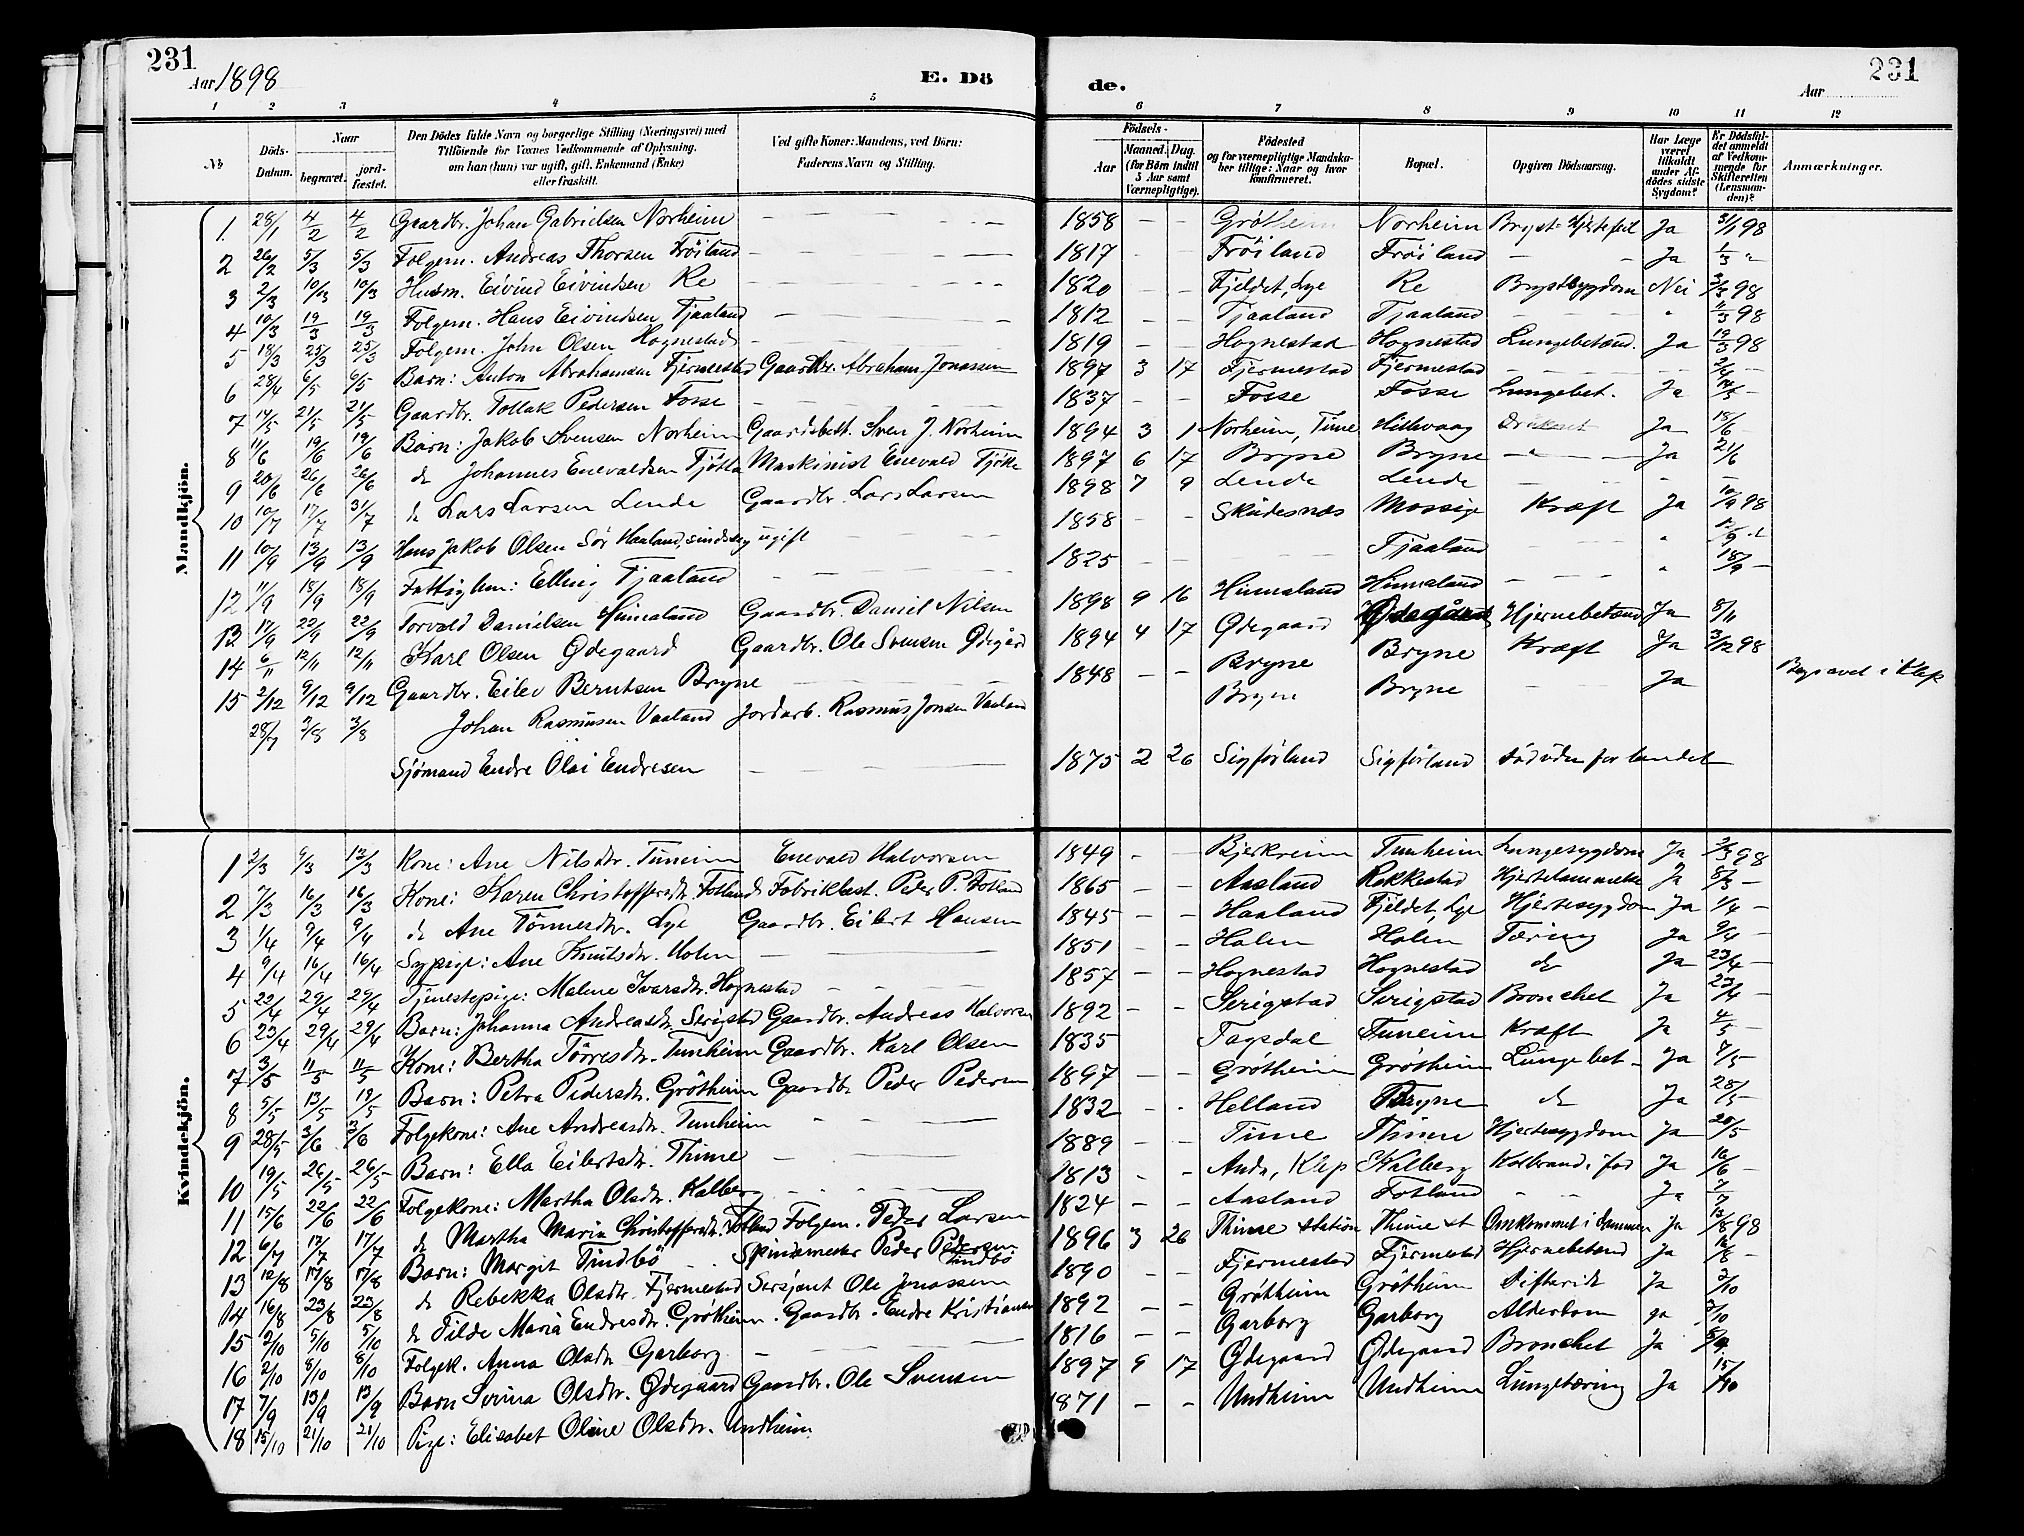 231
Aar 1898
E. Dö
de.
231
Aar
1 2 3 4 5 6 7 8 9 10 11 12
No
Döds-Datum.
Naar begravet. jord-fæstet.
Den Dödes fulde Navn og borgerlige Stilling (Næringsvei) med Tilföiende for Voxnes Vedkommende af Oplysning, om han (hun) var ugift, gift, Enkemand (Enke) eller fraskilt.
Ved gifte Koner: Mandens, ved Börn: Faderens Navn og Stilling.
Födsels-Aar Maaned. Dag. (for Börn indtil 5 Aar samt Værnepligtige).
Födested og for værnepligtige Mandskaber tillige: Naar og hvor konfirmeret.
Bopæl.
Opgiven Dödsaarsag.
Har Læge været tilkaldt under Afdödes sidste Sygdom?
Er Dödsfaldet anmeldt af Vedkommende for Skifteretten (Lensmanden)?
Anmærkninger.
Mandkjön.
1. 28/1 4/2 4/2 Gaardbr. Johan Gabrielsen Norheim — 1858 — — Grötheim Norheim Bryst- Hjertefeil Ja 31/1 98
2 26/2 5/3 5/3 Folgem. Andreas Thorsen Fröiland — 1817 - - Fröiland Fröiland — Ja 1/3 "
3 2/3 10/3 10/3 Husm. Eivind Eivindsen Re — 1820 - - Fjeldet, Lye Re Brystsygdom Nei 3/3 98
4 10/3 19/3 19/3 Folgem. Hans Eivindsen Tjaaland — 1812 — — Tjaaland Tjaaland — " 11/3 98
5 18/3 25/3 25/3 Folgem. John Olsen Hognestad — 1819 — — Hognestad Hognestad Lungebetænd. Ja 19/3 98
6 28/4 6/5 6/5 Barn: Anton Abrahamsen Fjermestad Gaardbr. Abraham Jonassen 1897 3 17 Fjermestad Fjermestad — — 2/5 —
7 14/5 21/5 21/5 Gaardbr. Tollak Pedersen Fosse — 1837 - - Fosse Fosse Lungebet. Ja 14/5 -
8 11/6 19/6 19/6 Barn: Jakob Svensen Norheim Gaardsbest. Sven J. Norheim 1894 3 1 Norheim, Time Ja 18/6 -
9 20/6 26/6 26/6 do Johannes Enevaldsen Tjötta Maskinist Enevald Tjötta 1897 6 17 Bryne Bryne — Ja 21/6
10 10/7 17/7 31/7 do Lars Larsen Lende Gaardbr. Lars Larsen 1898 7 9 Lende Lende — "
11 10/9 13/9 13/9 Hans Jakob Olsen Sör Haaland, sindssyg ugift — 1858 - - Skudesnæs Mossige Kræft Ja 10/9 98
12 11/9 18/9 18/9 Fattiglem: Elling Tjaaland — 1825 — — Tjaaland — " 12/9
13 17/9 22/9 22/9 Torvald Danielsen Himaland Gaardbr. Daniel Nilsen 1898 9 16 Himaland Himaland — " 18/9 —
14 6/11 12/11 12/11 Karl Olsen Ödegaard Gaardbr. Ole Svensen Ödegård 1894 4 17 Ödegaard Ödegård Hjernebetænd Ja 8/11
15 2/12 9/12 9/12 Gaardbr. Eilev Berntsen Bryne — 1848 - - Bryne Bryne Kræft Ja 3/12 98
28/7 3/8 3/8 Johan Rasmusen Vaaland Jordarb. Rasmus Jonsen Vaaland Bryne Bryne — Ja Begravet i Klep
Sjömand Endre Olai Endresen — 1875 2 26 Sigförland Sigförland död uden for landet
Kvindekjön.
1 2/3 9/3 12/3 Kone: Ane Nilsdtr. Tuneim Enevald Halvorsen 1849 - - Bjerkreim Tunheim Lungesygdom Ja 3/3 98
2 7/3 16/3 16/3 Kone: Karen Christoffersdtr. Fotland Fabrikbest. Peder P. Fotland 1865 - - Aasland Rokkestad Ja 8/3 —
3 1/4 9/4 9/4 do Ane Tönnesdtr. Lye Gaardbr. Eilert Hansen 1845 - - Haaland Fjeldet, Lye Hjertesygdom Ja 1/4 —
4 9/4 16/4 16/4 Sypige: Ane Knutsdtr. Holen — 1851 - - Holen Holen Tæring Ja 9/4 —
5 22/4 29/4 29/4 Tjenestepige: Malene Ivarsdtr. Hognestad — 1857 — — Hognestad Hognestad do Ja 23/4 —
6 23/4 29/4 29/4 Barn: Johanna Andreasdtr. Serigstad Gaardbr. Andreas Halvorsen 1892 - - Serigstad Serigstad Bronchet Ja 23/4 —
7 3/5 11/5 11/5 Kone: Bertha Törresdtr. Tunheim Gaardbr. Karl Olsen 1835 Tagsdal Tuneim Kræft Ja 4/5 —
8 5/5 13/5 13/5 Barn: Petra Pedersdtr. Grötheim Gaardbr. Peder Pedersen 1897 — — Grötheim Grötheim Lungebet - Ja 7/5
9 28/5 3/6 3/6 Folgekone: Ane Andreasdtr. Tunheim — 1832 - - Helland Bryne do Ja 28/5 —
10 19/5 26/5 26/5 Barn: Ella Eilertsdtr. Thime — 1889 - - Time Thime Hjertesygdom Ja 20/5
11 15/6 22/6 22/6 Folgekone: Martha Olsdtr. Kalberg — 1813 - - Anda, Klep Kalberg Koldbrand i fod Ja 16/6 —
12 6/7 17/7 17/7 do Martha Maria Christoffersdtr. Fotland Folgem. Peder Larsen 1824 — — Aasland Fotland - - Ja 7/7
13 12/8 17/8 17/8 Barn: Margit Tindbö Spindemester Peder Pedersen Tindbö 1896 3 26 Thime station Thime st Omkommet i dammen Ja 13/8 98
14 16/8 23/8 23/8 do Rebekka Olsdtr. Fjermestad Sersjant Ole Jonassen 1890 - - Fjermestad Fjermestad Hjernebetænd Ja 16/8 —
15 2/10 5/10 5/10 do Tilde Maria Endresdtr. Grötheim. Gaardbr. Endre Kristiansen 1892 - - Grötheim Grötheim Difterit Ja 3/10
16 2/10 8/10 8/10 Folgek. Anna Olsdtr Garborg — 1816 - - Garborg Garborg Alderdom ja 3/10
17 7/9 13/9 13/9 Barn Serina Olsdtr. Ödegaard Gaardbr. Ole Svensen 1897 9 17 Ödegaard Ödegaard Bronchet Ja 8/9
18 15/10 21/10 21/10 Pige: Elisabet Oline Olsdtr. Undheim 1871 - - Undheim Undheim Lungetæring Ja 15/10